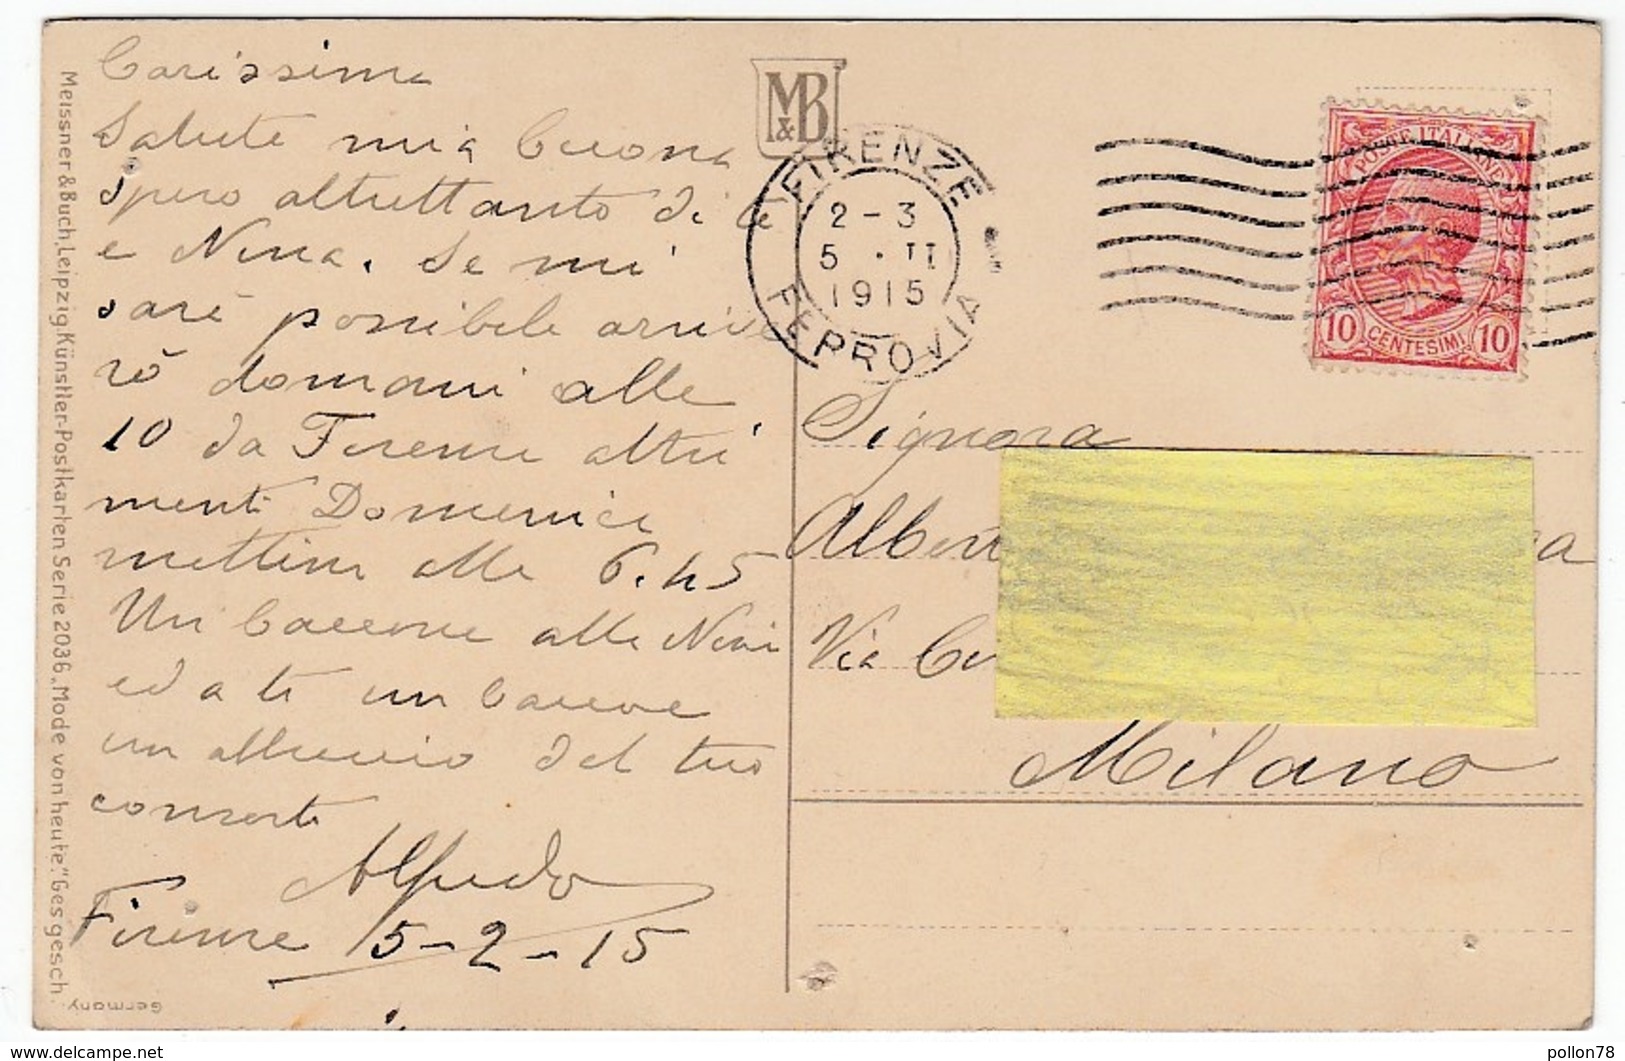 Carissima
Salute mia buona
spero altrettanto di te
e Nina. Se mi
sarà possibile arrive
rò domani alle
10 da Firenze altri
menti Domenica
mattina alle 6.45
Un bacione alla Nini
ed a te un bacione
un abbraccio del tuo
consorte
Alfredo
Firenze 5-2-15
Meissner & Buch, Leipzig. Künstler-Postkarten Serie 2036. „Mode von heute." Ges gesch.
Germany
M&B
FIRENZE
2-3
5 . II
1915
FERROVIA
POSTE ITALIANE
10 CENTESIMI 10
Signora
Via
Milano
delcampe.net
pollon78